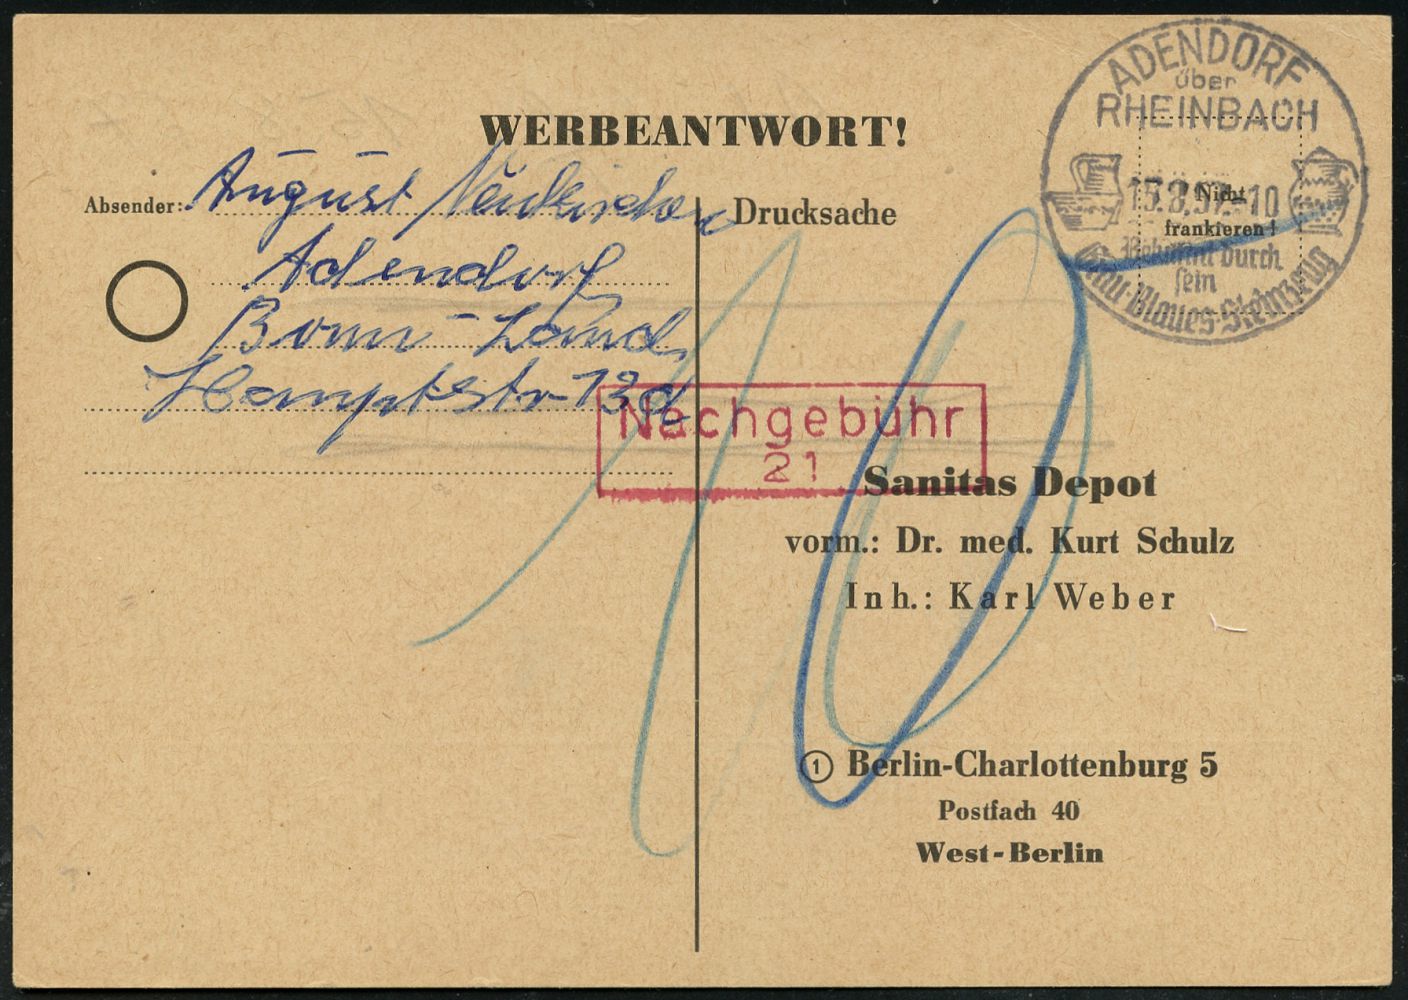 WERBEANTWORT!
Absender: August
Adendorf
Bonn-Land
Hauptstr 13d
Drucksache
ADENDORF
über
RHEINBACH
15.8.57.-10
Nicht
frankieren!
Bekannt durch
sein
Grau-Blaues-Steinzeug
Nachgebühr
21
10
Sanitas Depot
vorm.: Dr. med. Kurt Schulz
Inh.: Karl Weber
1 Berlin-Charlottenburg 5
Postfach 40
West-Berlin